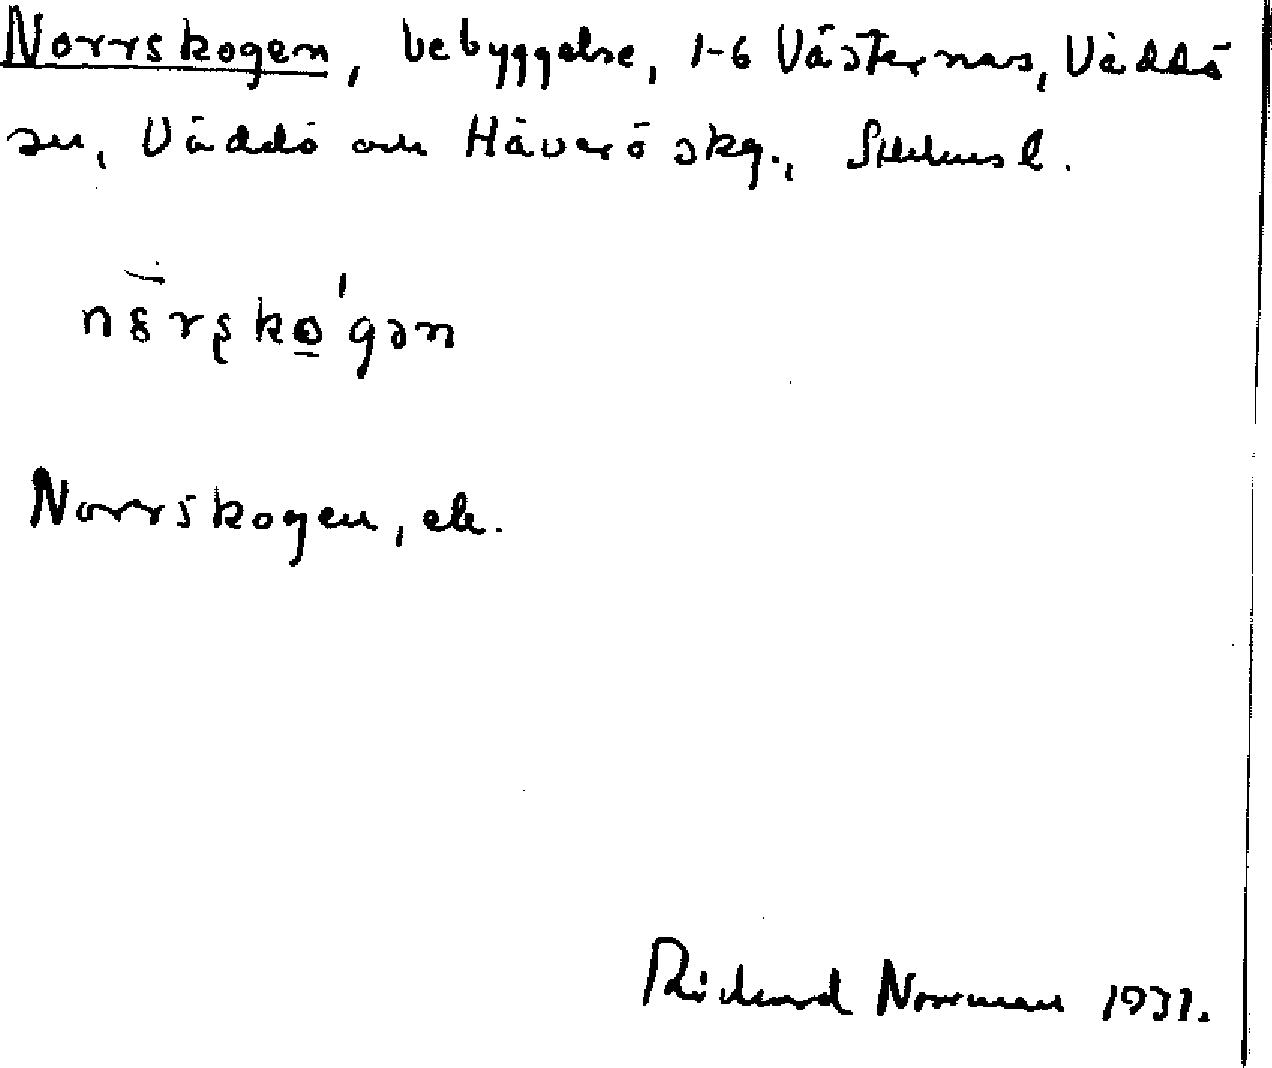 Norrskogen, bebyggelse, 1-6 Västernäs, Väddö
sn, Väddö och Häverö skg., Sthlms l.
nȣ̄rʂko̠'gən
Norrskogen, ek.
Richard Norrman 1931.